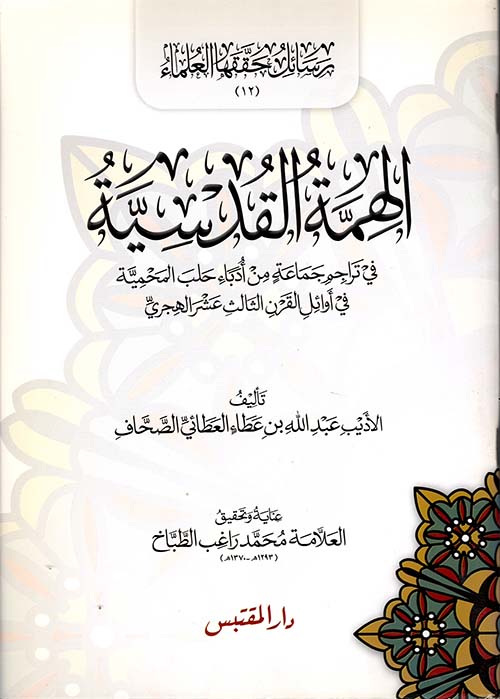 رَسَائِلُ حَقَّقَهَا العُلَمَاءُ
(١٢)
الهِمَّةُ القُدْسِيَّةُ
فِي تَرَاجِمِ جَمَاعَةٍ مِنْ أُدَبَاءِ حَلَبَ المَحْمِيَّة
فِي أَوَائِلِ القَرْنِ الثَّالِثَ عَشَرَ الهِجْرِيِّ
تَأْلِيفُ
الأَدِيبِ عَبْدِ اللهِ بنِ عَطَاءِ العَطَائِيِّ الصَّحَّافِ
عِنَايَةُ وَتَحْقِيقُ
العَلَّامَة مُحَمَّد رَاغِب الطَّبَّاخ
(١٢٩٣هـ - ١٣٧٠هـ)
دار المقتبس